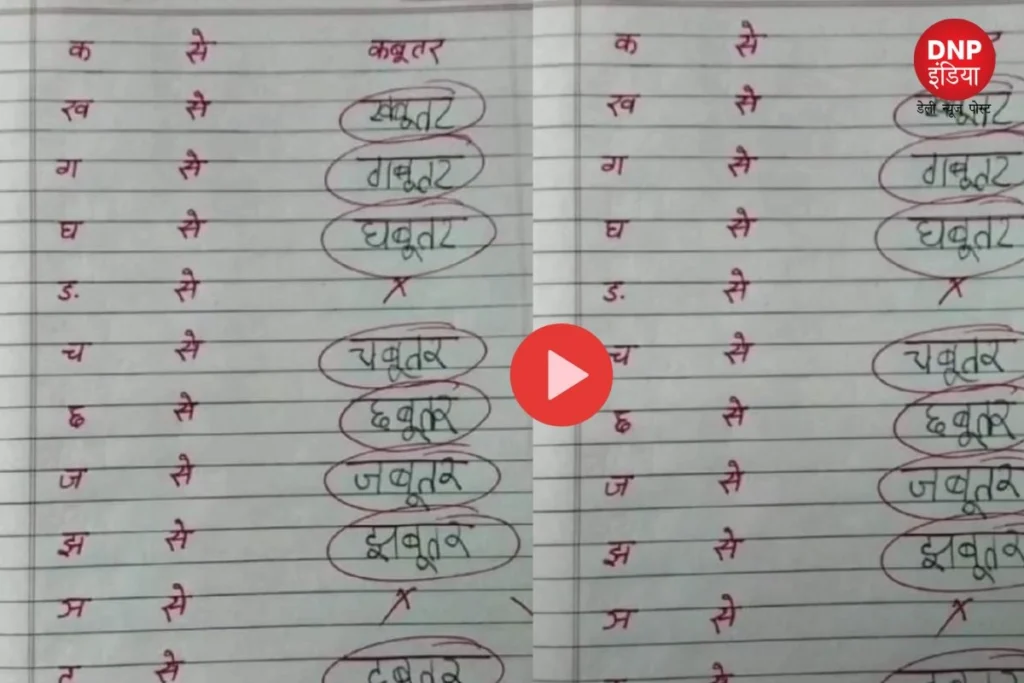 क से कबूतर
ख से खबूतर
ग से गबूतर
घ से घबूतर
ङ. से X
च से चबूतर
छ से छबूतर
ज से जबूतर
झ से झबूतर
ञ से X
ट से टबूतर
क से
ख से
ग से गबूतर
घ से घबूतर
ङ. से X
च से चबूतर
छ से छबूतर
ज से जबूतर
झ से झबूतर
ञ से X
से
DNP
इंडिया
डेली न्यूज़ पोस्ट